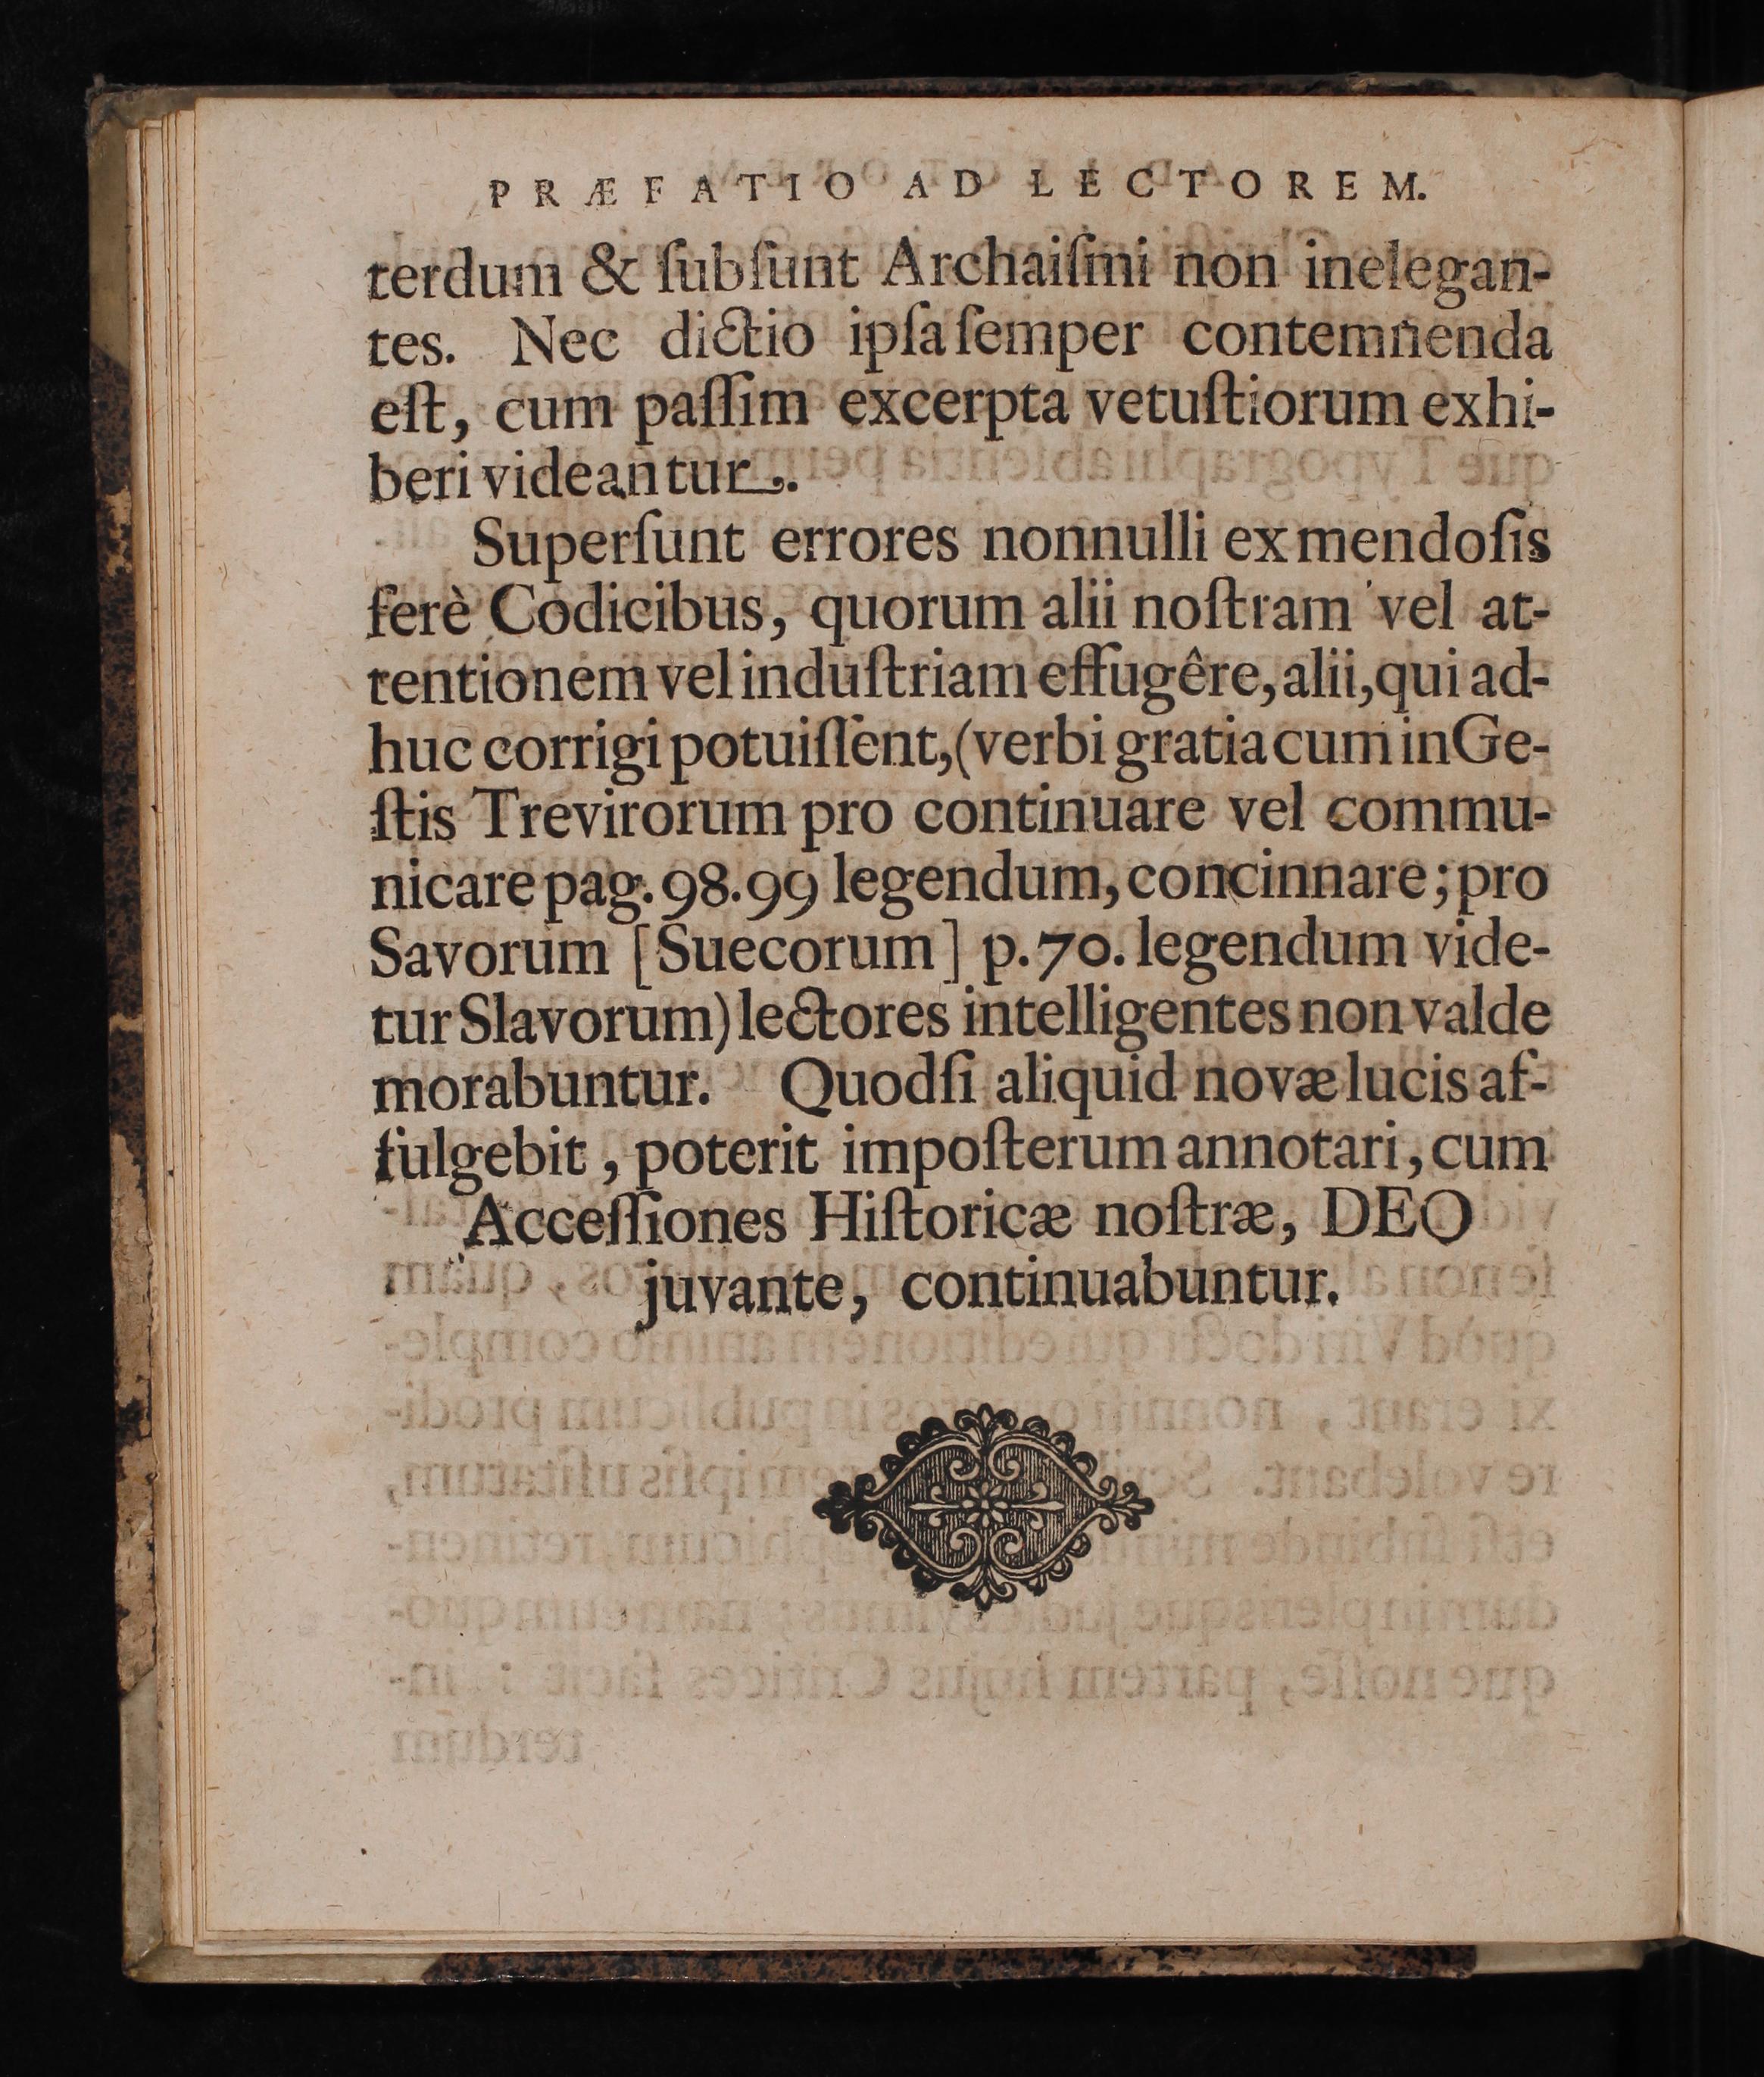 PRÆFATIO AD LECTOREM.
terdum & ſubſunt Archaiſmi non inelegan-
tes. Nec dictio ipſa ſemper contemnenda
eſt, cum paſſim excerpta vetuſtiorum exhi-
beri videantur.
Superſunt errores nonnulli ex mendoſis
ferè Codicibus, quorum alii noſtram vel at-
tentionem vel induſtriam effugêre, alii, qui ad-
huc corrigi potuiſſent, (verbi gratia cum in Ge-
ſtis Trevirorum pro continuare vel commu-
nicare pag. 98. 99 legendum, concinnare; pro
Savorum [Suecorum] p. 70. legendum vide-
tur Slavorum) lectores intelligentes non valde
morabuntur. Quodſi aliquid novæ lucis af-
fulgebit, poterit impoſterum annotari, cum
Acceſſiones Hiſtoricæ noſtræ, DEO
juvante, continuabuntur.